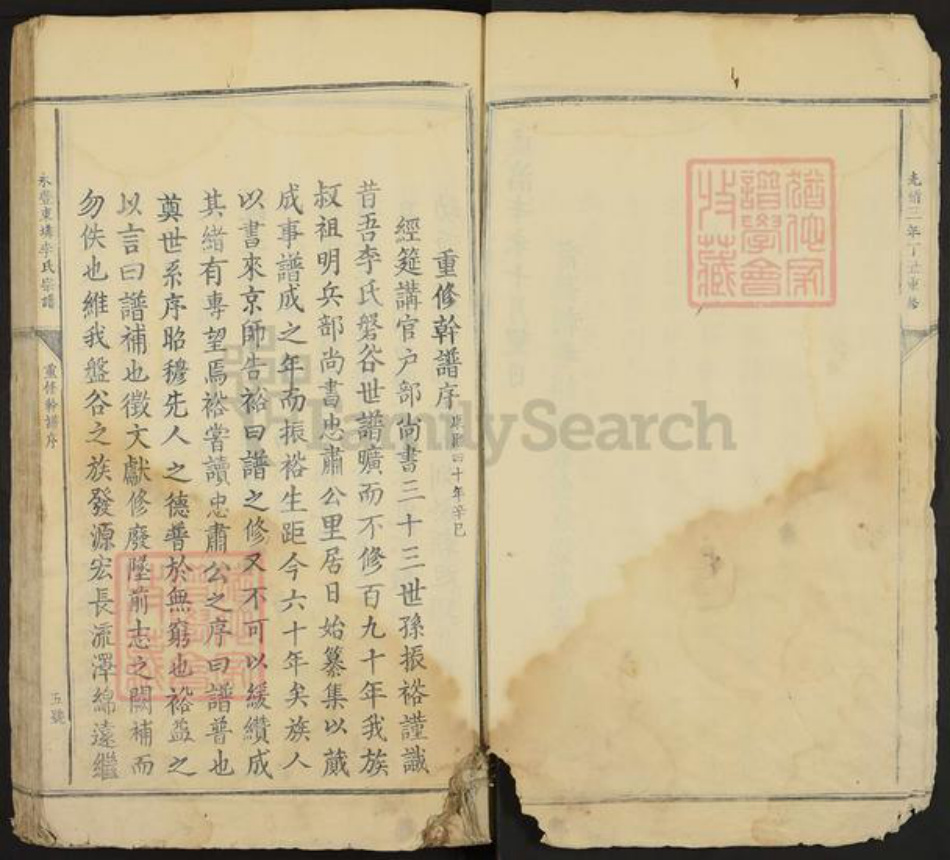 光緒三年丁丑重修
猶他家
譜學會
收藏
重修幹譜序 康熙四十年辛巳
經筵講官户部尚書三十三世孫振裕謹識
昔吾李氏磐谷世譜曠而不修百九十年我族
叔祖明兵部尚書忠肅公里居日始纂集以蕆
成事譜成之年而振裕生距今六十年矣族人
以書來京師告裕曰譜之修又不可以緩纘成
其緒有專望焉裕嘗讀忠肅公之序曰譜普也
奠世系序昭穆先人之德普於無窮也裕益之
以言曰譜補也徵文獻修廢墜前志之闕補而
勿佚也維我盤谷之族發源宏長流澤綿遠繼
永豐東塘李氏宗譜
重修幹譜序
五號
猶他家
譜學會
收藏
FamilySearch